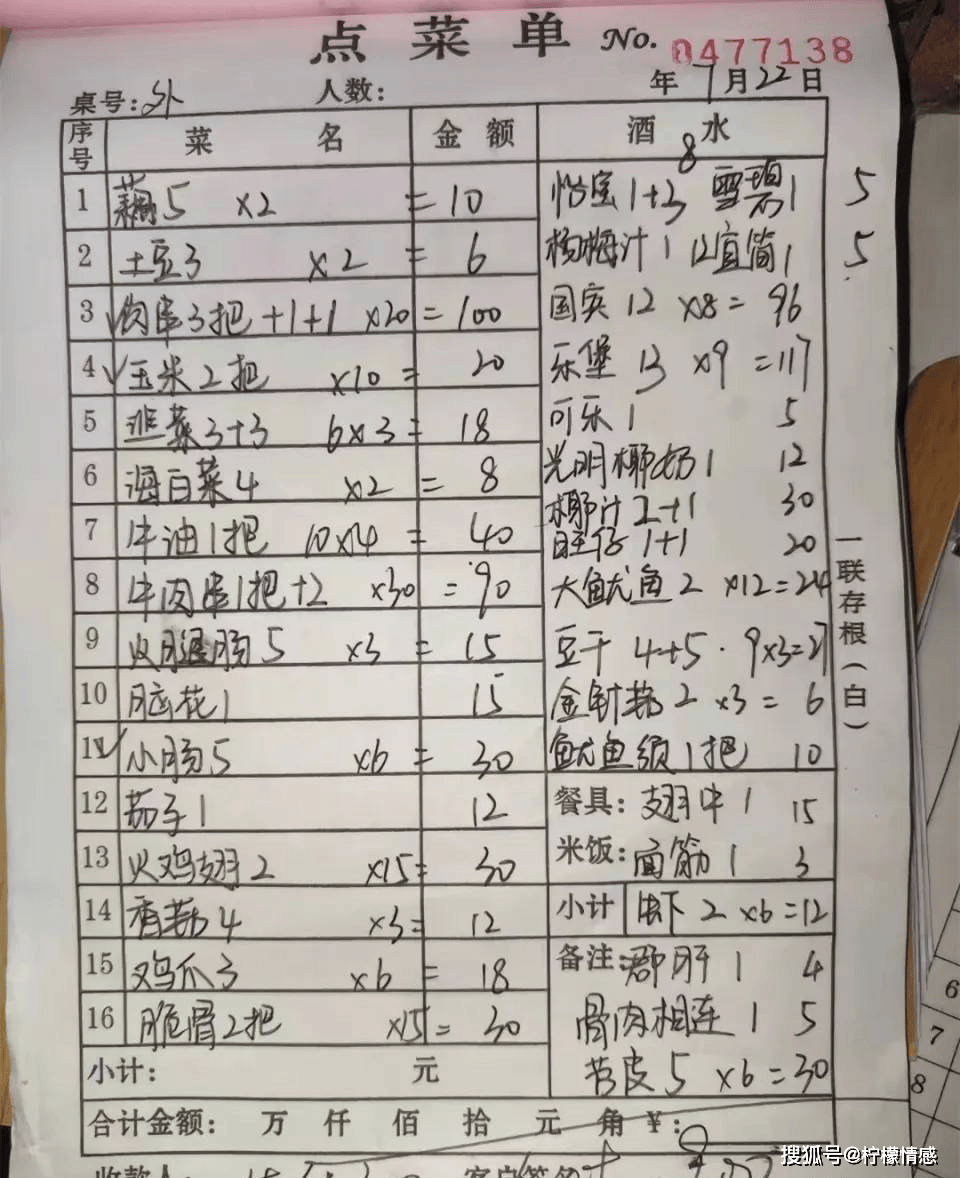 点菜单 No. 0477138
桌号:外 人数: 年 7月22日
序号 菜名 金额 酒水
1 藕5 ×2 = 10
2 土豆3 ×2 = 6
3 肉串3把+1+1 ×20 = 100
4 玉米2把 ×10 = 20
5 韭菜3+3 6×3= 18
6 海白菜4 ×2 = 8
7 牛油1把 10×4 = 40
8 牛肉串1把+2 ×30 = 90
9 火腿肠5 ×3 = 15
10 脑花1 15
11 小肠5 ×6 = 30
12 茄子1 12
13 火鸡翅2 ×15= 30
14 香菇4 ×3= 12
15 鸡爪3 ×6 = 18
16 脆骨2把 ×15= 30
小计: 元
8
怡宝1+3 雪碧1 5
杨梅汁1 12 1 5
国宾12 ×8= 96
乐堡13 ×9 =117
可乐1 5
光明椰奶1 12
椰汁2+1 30
旺仔1+1 20
大鱿鱼2 ×12=24
豆干4+5 . 9×3=27
金针菇2 ×3= 6
鱿鱼须1把 10
餐具: 翅中1 15
米饭: 面筋1 3
小计 2 ×6=12
备注: 郡肝1 4
骨肉相连1 5
苕皮5 ×6=30
一联存根(白)
合计金额: 万 仟 佰 拾 元 角 ¥:
收款人
客户签名
6
7
8
搜狐号@柠檬情感